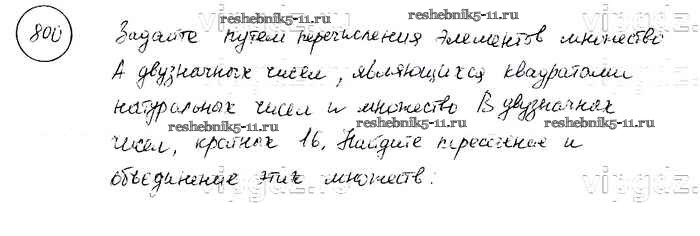 800 Задайте путем перечисления элементов множество
А двузначных чисел, являющихся квадратами
натуральных чисел и множество В двузначных
чисел, кратных 16. Найдите пересечение и
объединение этих множеств.
reshebnik5-11.ru
reshebnik5-11.ru
reshebnik5-11.ru
reshebnik5-11.ru
reshebnik5-11.ru
reshebnik5-11.ru
vipgdz.ru
vipgdz.ru
vipgdz.ru